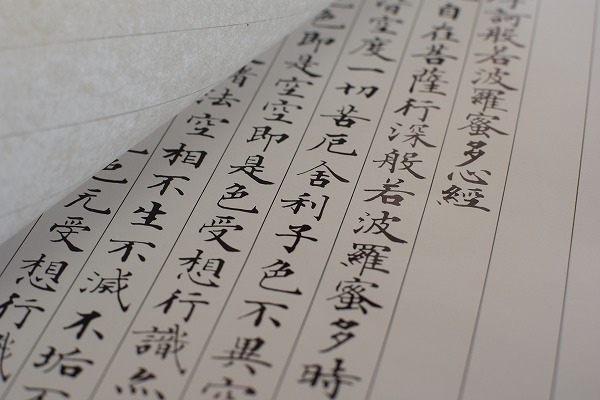 訶般若波羅蜜多心經
自在菩薩行深般若波羅蜜多時
皆空度一切苦厄舍利子色不異空
色即是空空即是色受想行識亦
諸法空相不生不滅不垢不
色无受想行識